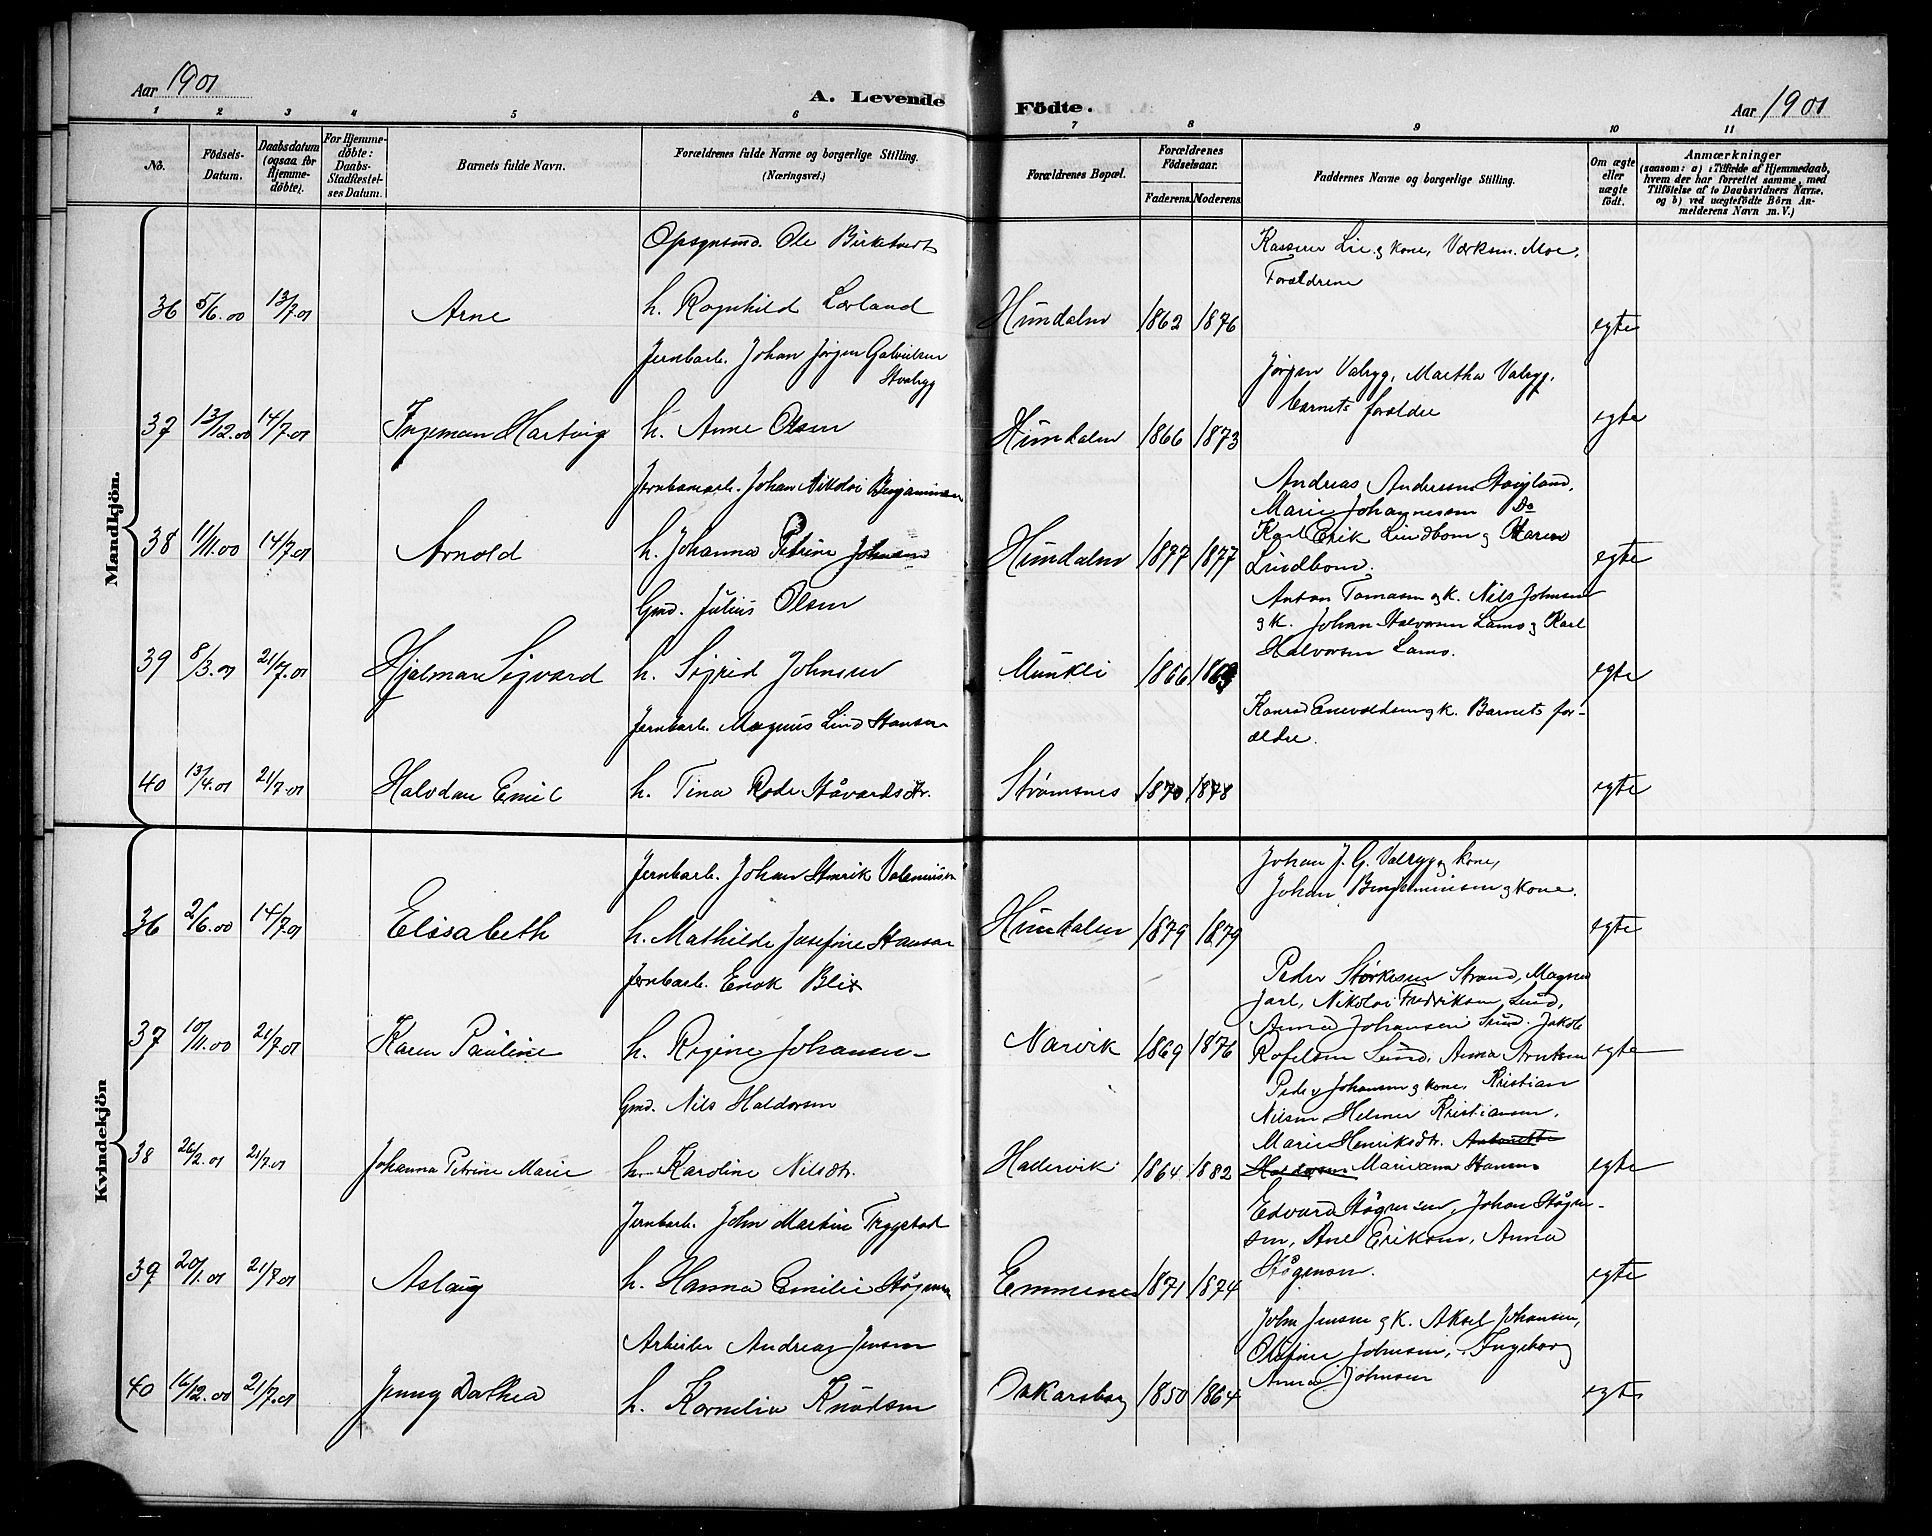 Aar 1901
A. Levende Födte.
Aar 1901
1 2 3 4 5 6 7 8 9 10 11
No.
Födsels-Datum.
Daabsdatum (ogsaa for Hjemmedöbte).
For Hjemmedöbte: Daabs-Stadfæstelses Datum.
Barnets fulde Navn.
Forældrenes fulde Navne og borgerlige Stilling. (Næringsvei.)
Forældrenes Bopæl.
Forældrenes Födselsaar.
Faderens. Moderens.
Faddernes Navne og borgerlige Stilling.
Om ægte eller uægte födt.
Anmærkninger
(saasom: a) i Tilfælde af Hjemmedaab, hvem der har forrettet samme, med Tilföielse af to Daabsvidners Navne, og b) ved uægtefödte Börn Anmelderens Navn m. V.)
Mandkjön.
Opsynsmd. Ole Birketvedt
Kasserer Lie og kone, Værksm. Moe,
Forældrene
36 5/6.00 13/7.01 Arne h. Ragnhild Lærland Hundalen 1862 1876 egte
Jernbarb. Johan Jørgen Gabrielsen
Jørgen Valryg, Martha Valryg,
barnets forældre
37 13/12.00 14/7.01 Ingeman Hartvig h. Anne Olsen Hundalen 1866 1873 egte
Jernbanearb. Johan Nikolai Benjaminsen
Andreas Andersen
Marie Johannesen Do
38 11/11.00 14/7.01 Arnold h. Johanna Petrine Johnsen Hundalen 1877 1877 Karl Erik Lindbom og Maren egte
Lindbom.
Gmd. Julius Olsen
Anton Tomasen og k. Nils Johnsen
og k. Johan Halvorsen Lamo og Karl
39 8/3.01 21/7.01 Hjalmar Sigvard h. Sigrid Johnsen Munkli 1866 Halvorsen Lamo. egte
Jernbarb. Magnus Lind Hansen
Konrad Enevoldsen og k. Barnets for-
ældre.
40 13/4.01 21/7.01 Halvdan Emil h. Tina Håvardsdtr. Strømsnes 1870 1878 egte
Kvindekjön
Jernbarb. Johan Henrik
Johan J. G. Valryg og kone,
Johan Benjaminsen og kone.
36 2/6.00 14/7.01 Elisabeth h. Mathilde Josefine Hansen Hundalen 1879 1879 egte
Jernbarb. Enok Blix
Peder Størkesen Strand, Magna
Jarl, Nikolai Fredriksen, Lund,
37 10/11.00 21/7.01 Karen Pauline h. Regine Johansen Narvik 1869 1876 Anna Johansen Lund. Jakob egte
Rafelsen Lund, Anna Arntsen
Gmd. Nils Haldorsen
Peder Johansen og kone, Kristian
Nilsen Helmer Kristiansen,
Marie Henriksdtr. Antonette
38 26/2.01 21/7.01 Johanna Petrine Marie h. Karoline Nilsdtr. Hadervik 1864 1882 Haldorsen Mariane Hansen egte
Jernbarb. John Martin Trygstad
Edvard Hågensen, Johan Hågen-
sen, Ane Eriksen, Anna
39 20/1.01 21/7.01 Aslaug h. Hanna Emilie Hågensen Emmenes 1871 1874 Hågensen. egte
Arbeider Andreas Jensen
John Jensen og k. Aksel Johansen,
Olafine Johnsen, Ingeborg
40 16/12.00 21/7.01 Jenny Dathea h. Kornelia Knudsen Oskarsborg 1850 1864 Anna Johnsen egte